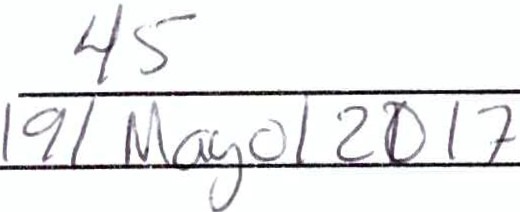 45
19/Mayo/2017